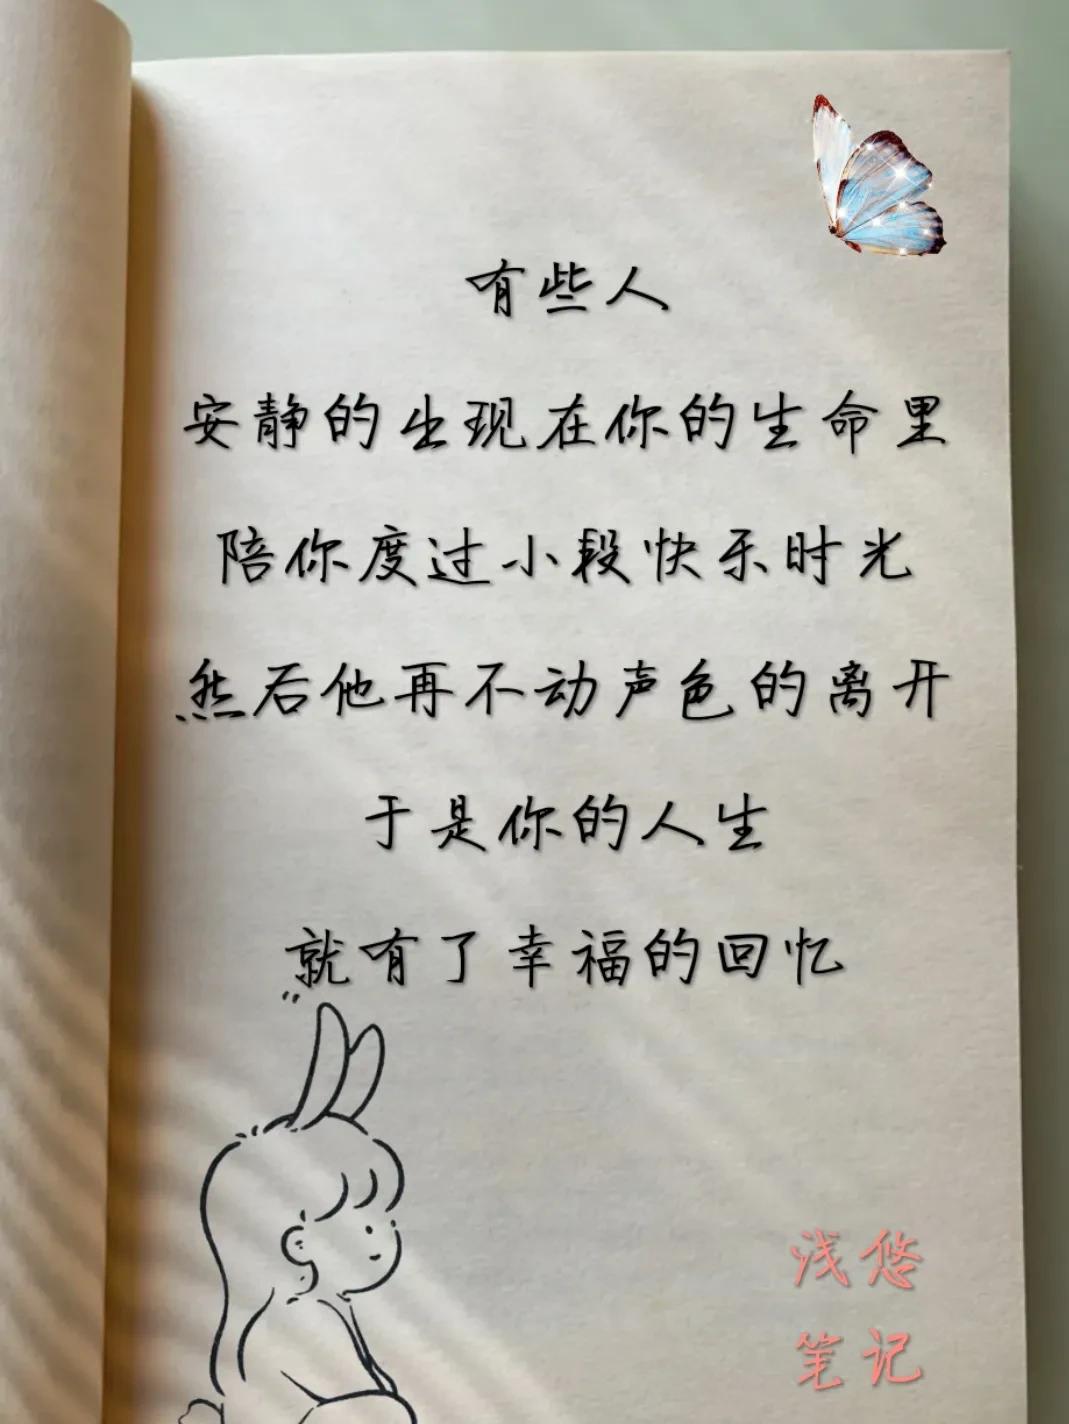 有些人
安静的出现在你的生命里
陪你度过小段快乐时光
然后他再不动声色的离开
于是你的人生
就有了幸福的回忆
浅悠
笔记